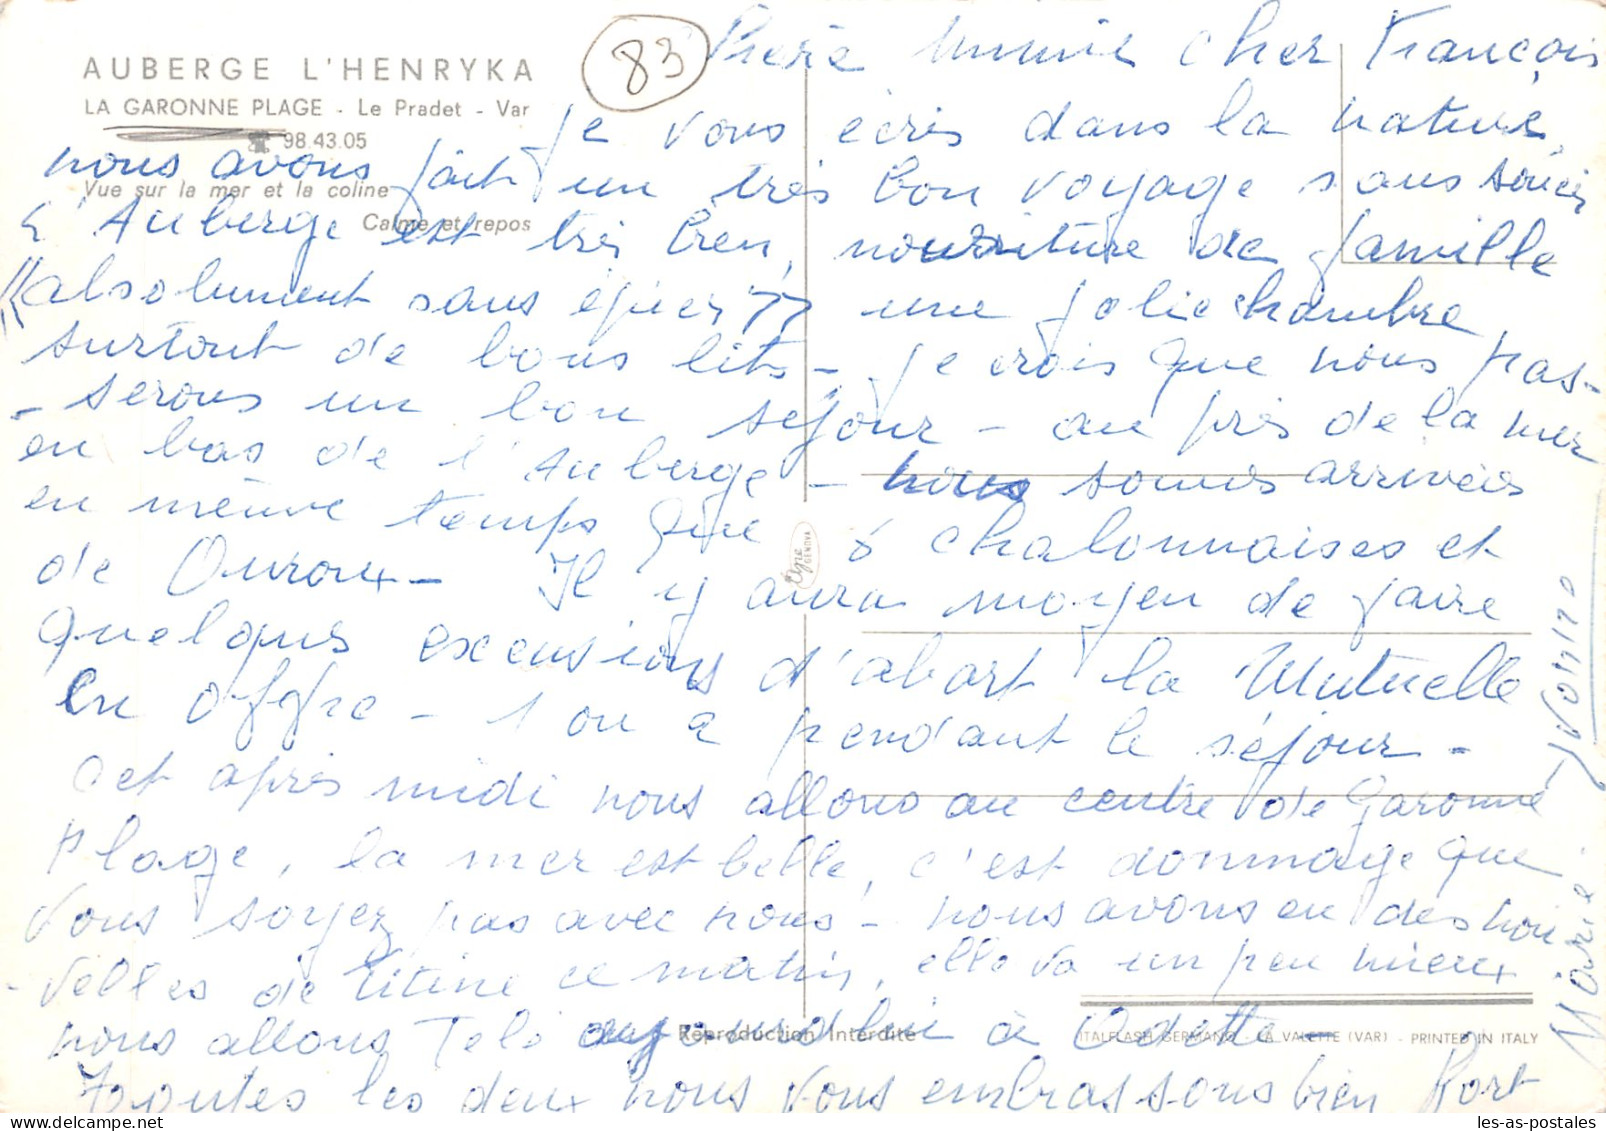 AUBERGE L'HENRYKA
LA GARONNE PLAGE - Le Pradet - Var
☎ 98.43.05
Vue sur la mer et la coline
Calme et repos
83
cher François
je vous écris dans la nature,
nous avons fait un très bon voyage sans soucis
L'Auberge est très bien, nourriture de famille
"absolument sans épices" une jolie chambre,
surtout de bons lits - je crois que nous pas-
-serons un bon séjour - au près de la mer
en bas de l'Auberge - nous sommes arrivées
en même temps que 8 chalonnaises et
de Ouroux - Il y aura moyen de faire
quelques excursions d'abart la Mutuelle
en offre 1 ou 2 pendant le séjour -
Cet après midi nous allons au centre de Garonne
Plage, la mer est belle, c'est dommage que
vous soyez pas avec nous - nous avons eu des nou
-velles de Titine ce matin, elle va un peu mieux
nous allons Télé aujourd'hui à Odette
Toutes les deux nous vous embrassons bien fort
Marie - Yvonne
Reproduction Interdite
ITALFLASH GERMANO - LA VALETTE (VAR) - PRINTED IN ITALY
GENOVA
les-as-postales.com